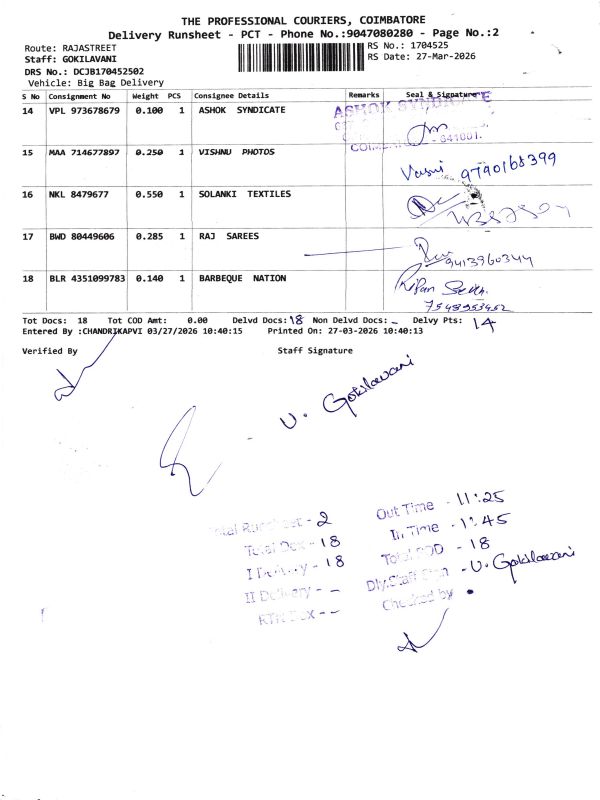 THE PROFESSIONAL COURIERS, COIMBATORE
Delivery Runsheet - PCT - Phone No.:9047080280 - Page No.:2
Route: RAJASTREET
RS No.: 1704525
Staff: GOKILAVANI
RS Date: 27-Mar-2026
DRS No.: DCJB170452502
Vehicle: Big Bag Delivery
S No Consignment No Weight PCS Consignee Details Remarks Seal & Signature
14 VPL 973678679 0.100 1 ASHOK SYNDICATE
ASHOK SYNDICATE
641001.
15 MAA 714677897 0.250 1 VISHNU PHOTOS
9790168399
16 NKL 8479677 0.550 1 SOLANKI TEXTILES
17 BWD 80449606 0.285 1 RAJ SAREES
9413960344
18 BLR 4351099783 0.140 1 BARBEQUE NATION
7548953452
Tot Docs: 18 Tot COD Amt: 0.00 Delvd Docs: 18 Non Delvd Docs: - Delvy Pts: 14
Entered By :CHANDRIKAPVI 03/27/2026 10:40:15 Printed On: 27-03-2026 10:40:13
Verified By Staff Signature
U. Gokilavani
Total Runsheet - 2
Out Time - 11:25
Total Dox - 18
In Time - 1:45
I Delivery - 18
Total POD - 18
II Delivery - -
Dly.Staff Sign - U. Gokilavani
RTN Dox - -
Checked by